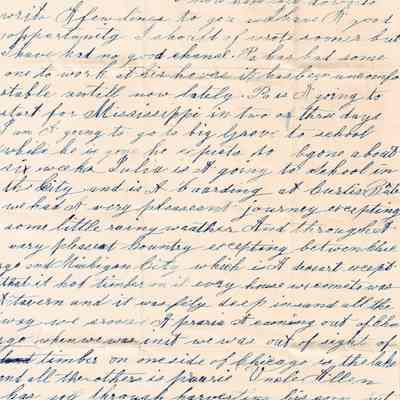 write A few lines to you we have A good
opportunity I should of wrote sooner but
I have had no good chance. Pa has had some
one to work at his house it has been uncomfo
stable untill now lately. Pa is A going to
start for Mississippi in two or three days
I am A going to go to big Grove to school
while he is gone he expects to be gone about
six weeks Julia is A going to school in
the City and is A boarding at Curtis
we had A very pleasant journey excepting
some little rainy weather And through A
very pleasent Country excepting between Chica
go and Michigan City which is A desert except
that it hof timber on it evry house we come to was
A tavern and it was fifty deep in sand all the
way we crossed A praria A coming out of Chica
go when we was in it we was out of sight of
timber on one side of Chicago is the lake
and all the other is prairie Uncle Allen
has got through harvesting his corn